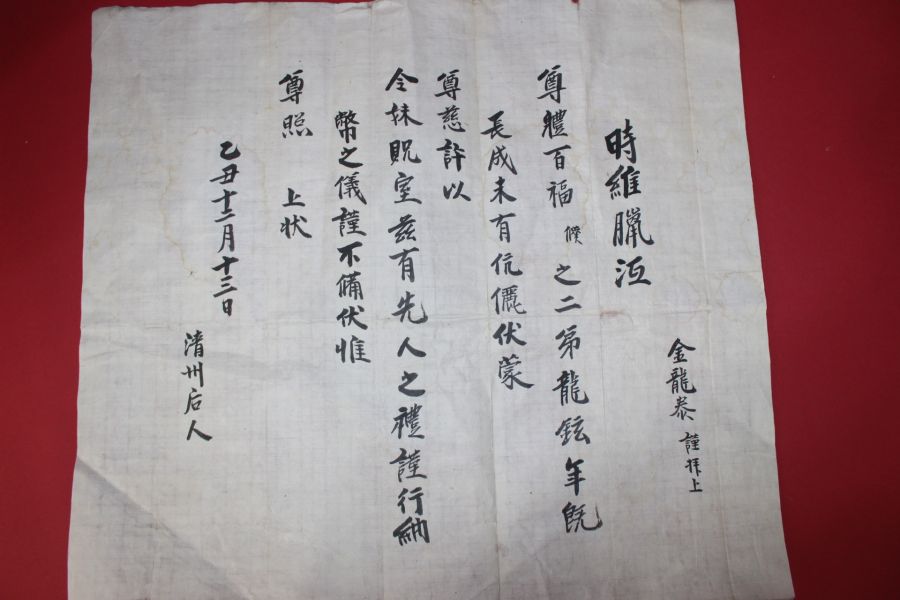 金龍泰 謹拜上
時維臘沍
尊體百福 僕 之二弟龍鉉年旣
長成未有伉儷伏蒙
尊慈許以
令妹貺室玆有先人之禮謹行納
幣之儀謹不備伏惟
尊照 上状
乙丑十二月十三日
淸州后人